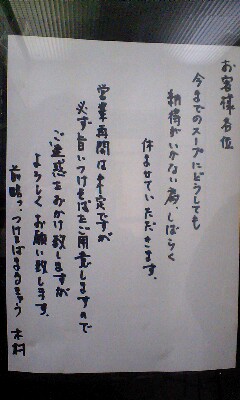 お客様各位
今までのスープにどうしても
納得がいかない為、しばらく
休ませていただきます。
営業再開は未定ですが
必ず旨いつけそばをご用意しますので
ご迷惑をおかけ致しますが
よろしくお願い致します。
前略っつけそばまるきゅう 木村